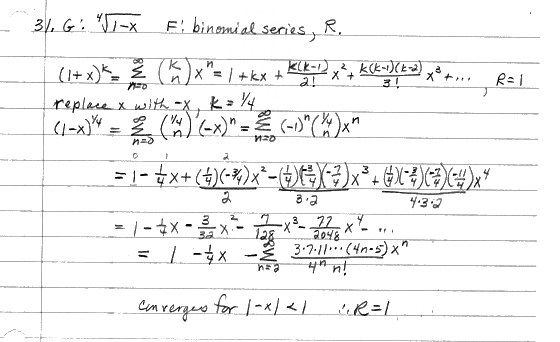 31. G: ⁴√1-x F: binomial series, R.
(1+x)^k = ∞Σn=0 (k n) x^n = 1 + kx + k(k-1)/2! x² + k(k-1)(k-2)/3! x³ + ..., R=1
replace x with -x, k = 1/4
(1-x)^1/4 = ∞Σn=0 (1/4 n) (-x)^n = ∞Σn=0 (-1)^n (1/4 n) x^n
0 1 2
= 1 - 1/4 x + (1/4)(-3/4)x²/2 - (1/4)(-3/4)(-7/4)x³/3·2 + (1/4)(-3/4)(-7/4)(-11/4)x⁴/4·3·2
= 1 - 1/4 x - 3/32 x² - 7/128 x³ - 77/2048 x⁴ - ...
= 1 - 1/4 x - ∞Σn=2 3·7·11···(4n-5)x^n/4^n n!
converges for |-x| < 1 ∴ R=1